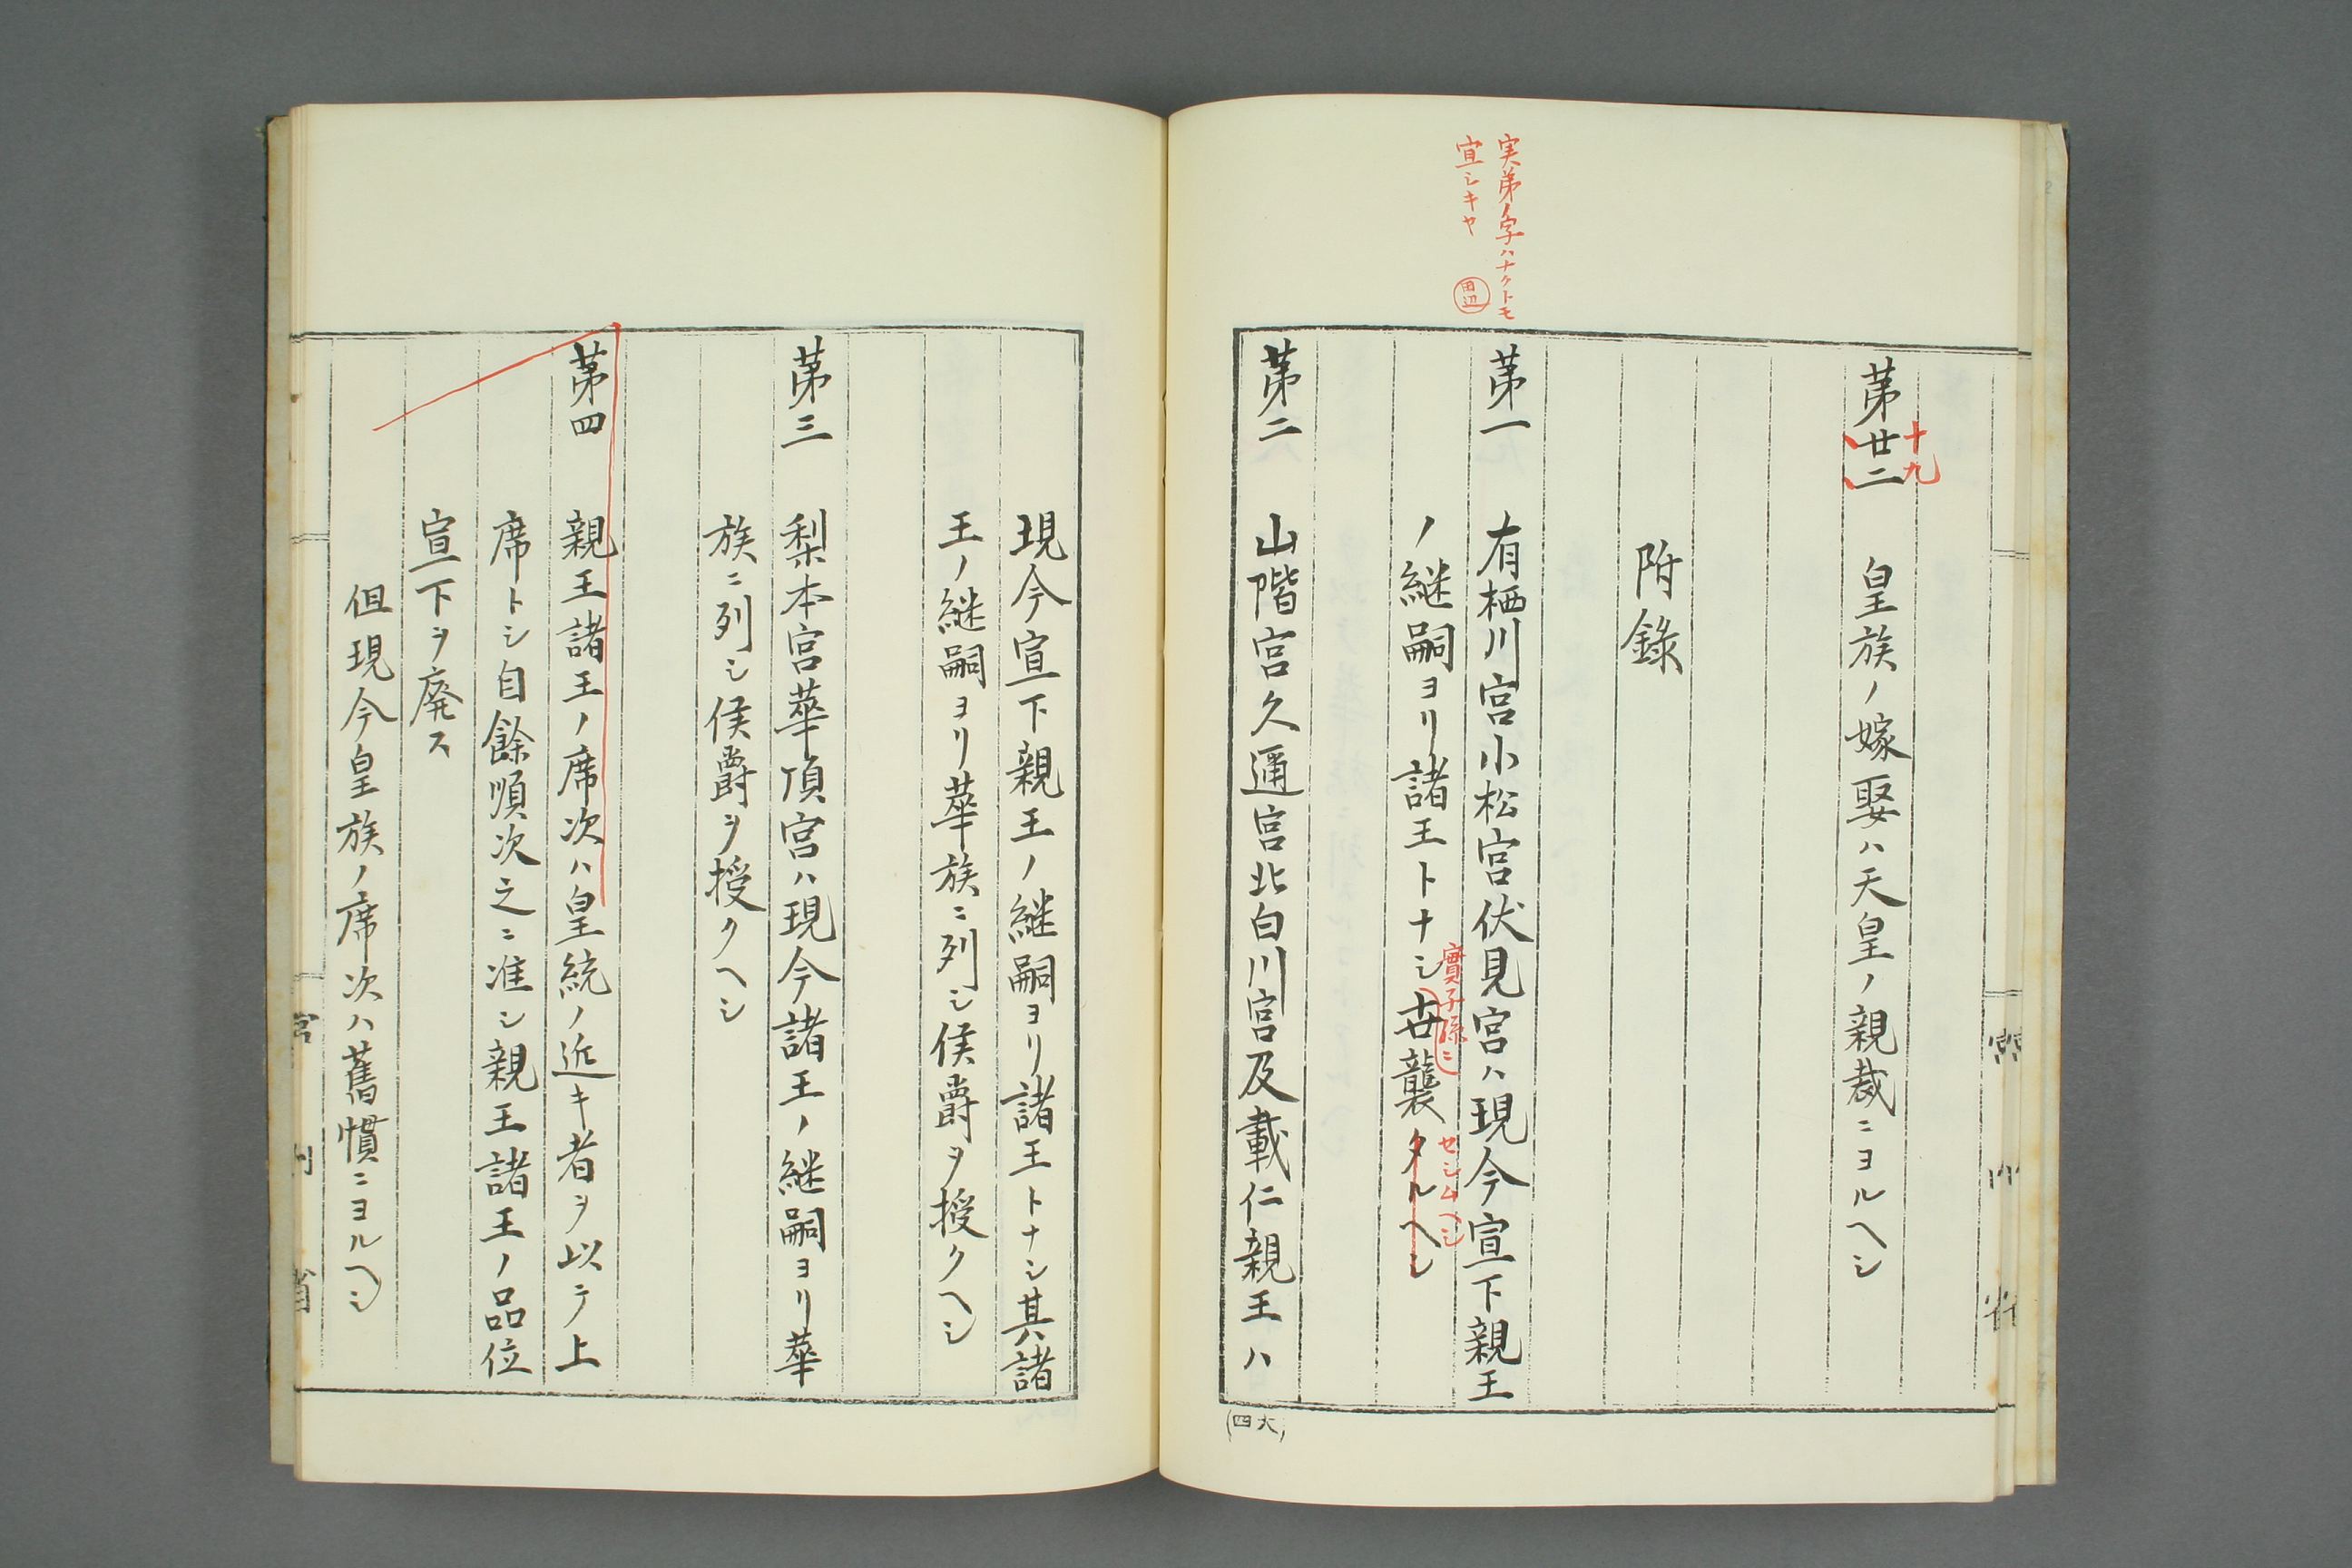 実弟ノ字ハナクトモ
宜シキヤ
田辺
十九
第廿二 皇族ノ嫁娶ハ天皇ノ親裁ニヨルヘシ
附錄
第一 有栖川宮小松宮伏見宮ハ現今宣下親王
實子孫ニ
セシムヘシ
ノ継嗣ヨリ諸王トナシ世襲タルヘシ
第二 山階宮久邇宮北白川宮及載仁親王ハ
(四大)
現今宣下親王ノ継嗣ヨリ諸王トナシ其諸
王ノ継嗣ヨリ華族ニ列シ侯爵ヲ授クヘシ
第三 梨本宮華頂宮ハ現今諸王ノ継嗣ヨリ華
族ニ列シ侯爵ヲ授クヘシ
第四 親王諸王ノ席次ハ皇統ノ近キ者ヲ以テ上
席トシ自餘順次之ニ准シ親王諸王ノ品位
宣下ヲ廃ス
但現今皇族ノ席次ハ舊慣ニヨルヘシ